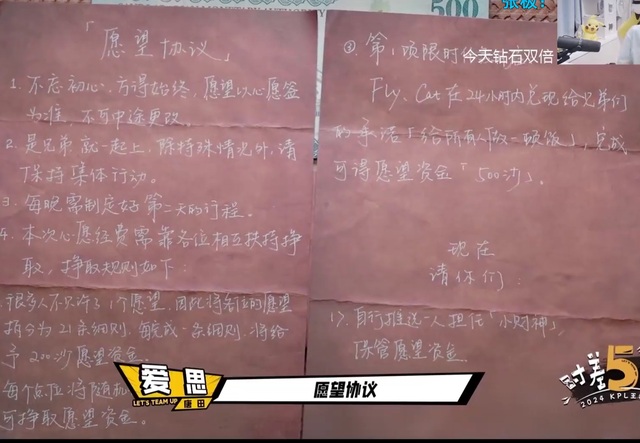 500
「愿望协议」
1. 不忘初心、方得始终，愿望以心愿签
为准，不可中途更改。
2. 是兄弟就一起上，除特殊情况外，请
保持集体行动。
3. 每晚需制定好第二天的行程。
4. 本次心愿经费需靠各位相互扶持挣
取，挣取规则如下：
很多人不只许了1个愿望，因此将各位的愿望
拆分为21条细则，每完成一条细则，将给
予200沙愿望资金。
每个点位将随机
可挣取愿望资金。
第1项限时
今天钻石双倍
Fly、Cat在24小时内兑现给兄弟们
的承诺「给所有人做一顿饭」，完成
可得愿望资金「500沙」。
现在
请你们：
自行推选一人担任「小财神」，
保管愿望资金
爱思
LET'S TEAM UP
唐田
愿望协议
时差5
2024 KPL王